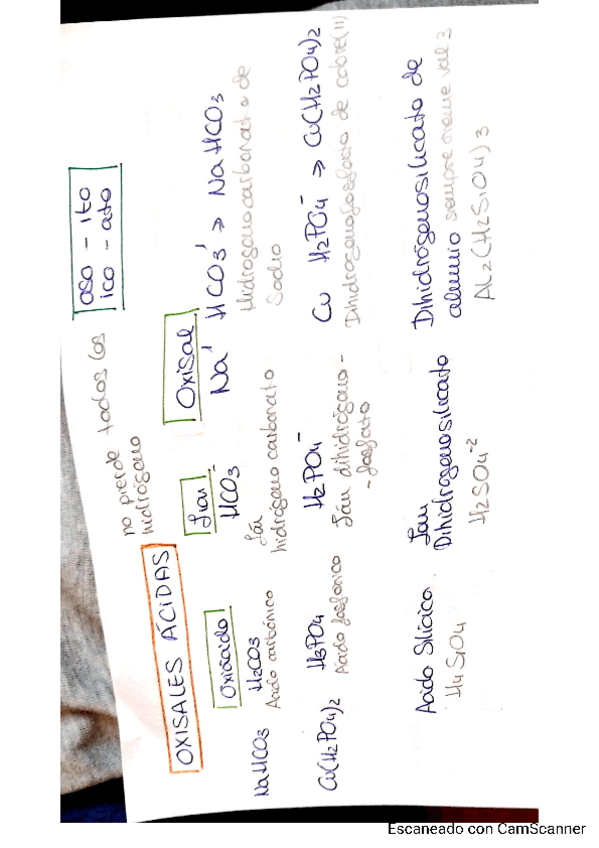 OXISALES ÁCIDAS
no pierde todos los
hidrógeno
oso - ito
ico - ato
Oxiácido
Ion
Oxisal
NaHCO3
H2CO3
Acido carbónico
HCO3-
Ión
hidrógeno carbonato
Na' HCO3' > NaHCO3
Hidrogenocarbonato de
Sodio
Cu(H2PO4)2
H3PO4
Acido fosforico
H2PO4-
Ión dihidrógeno-
-fosfato
Cu H2PO4- > Cu(H2PO4)2
Dihidrogenofosfato de cobre(II)
Acido Silícico
H4SiO4
Ion
Dihidrogenosilicato
H2SO4-2
Dihidrógenosilicato de
aluminio siempre vale 3
Al2(H2SiO4)3
Escaneado con CamScanner